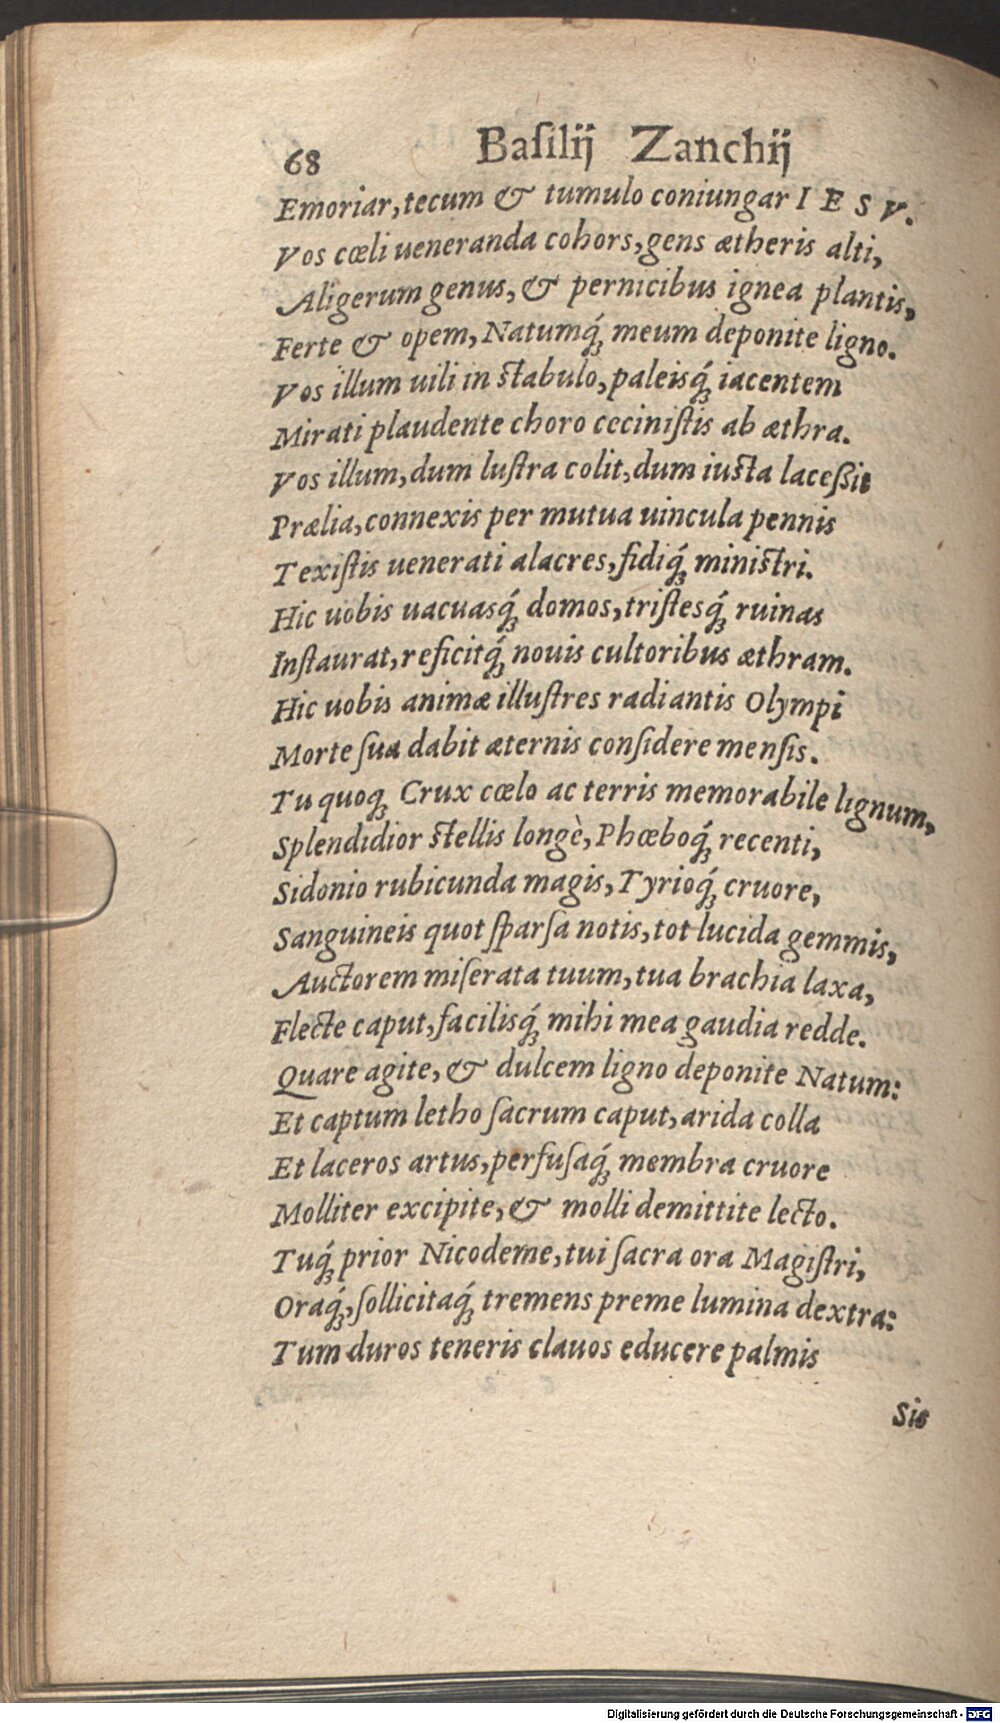 68 Baſilij Zanchij
Emoriar, tecum & tumulo coniungar I E S V.
Vos cœli ueneranda cohors, gens ætheris alti,
Aligerum genus, & pernicibus ignea plantis,
Ferte & opem, Natumq́; meum deponite ligno.
Vos illum uili in ſtabulo, paleisq́; iacentem
Mirati plaudente choro ceciniſtis ab æthra.
Vos illum, dum luſtra colit, dum iuſta laceßit
Prælia, connexis per mutua uincula pennis
Texiſtis uenerati alacres, fidiq́; miniſtri.
Hic uobis uacuasq́; domos, triſtesq́; ruinas
Inſtaurat, reficitq́; nouis cultoribus æthram.
Hic uobis animæ illuſtres radiantis Olympi
Morte ſua dabit æternis conſidere menſis.
Tu quoq; Crux cœlo ac terris memorabile lignum,
Splendidior ſtellis longè, Phœboq́; recenti,
Sidonio rubicunda magis, Tyrioq́; cruore,
Sanguineis quot ſparſa notis, tot lucida gemmis,
Auctorem miſerata tuum, tua brachia laxa,
Flecte caput, facilisq́; mihi mea gaudia redde.
Quare agite, & dulcem ligno deponite Natum:
Et captum letho ſacrum caput, arida colla
Et laceros artus, perfuſaq́; membra cruore
Molliter excipite, & molli demittite lecto.
Tuq́; prior Nicodeme, tui ſacra ora Magiſtri,
Oraq́;, ſollicitaq́; tremens preme lumina dextra:
Tum duros teneris clauos educere palmis
Sis
Digitalisierung gefördert durch die Deutsche Forschungsgemeinschaft - DFG